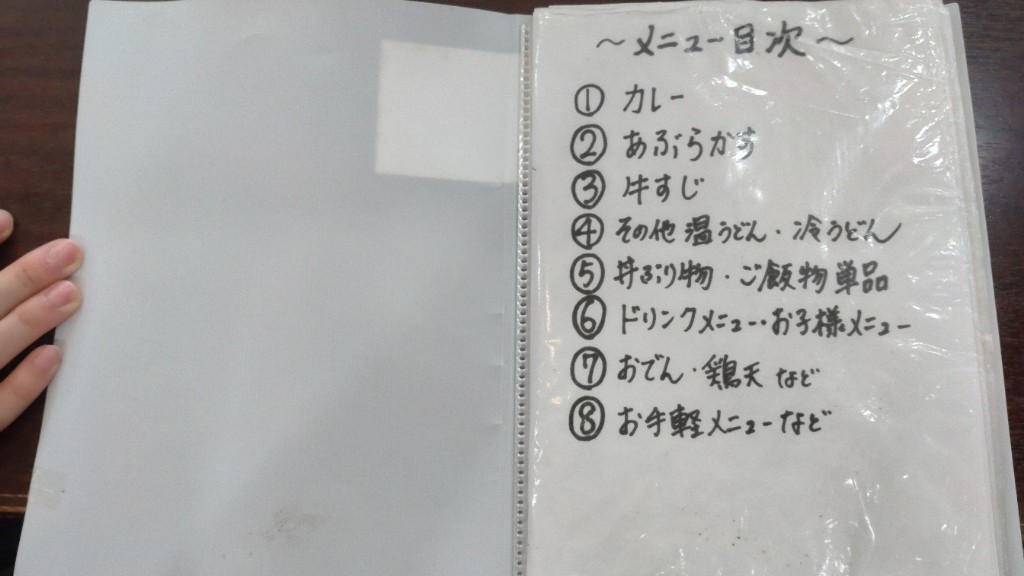 ～メニュー目次～
① カレー
② あぶらかす
③ 牛すじ
④ その他 温うどん・冷うどん
⑤ 丼ぶり物・ご飯物単品
⑥ ドリンクメニュー・お子様メニュー
⑦ おでん・鶏天 など
⑧ お手軽メニューなど